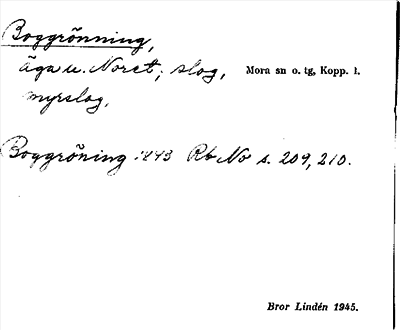 Boggrönning,
äga u. Noret; slog, Mora sn o. tg, Kopp. l.
myrslog.
Boggröning 1843 Rb No s. 209, 210.
Bror Lindén 1945.